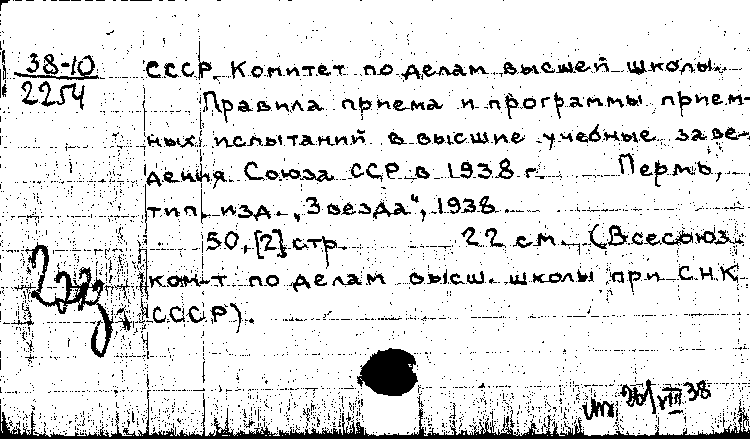 38-10
2254
СССР. Комитет по делам высшей школы.
Правила приема и программы прием-
ных испытаний в высшие учебные заве-
дения Союза ССР в 1938 г. Пермь,
тип. изд. „Звезда", 1938.
50, [2] стр. 22 см. (Всесоюз.
ком-т по делам высш. школы при СНК
СССР).
2 экз.
26/VIII 38